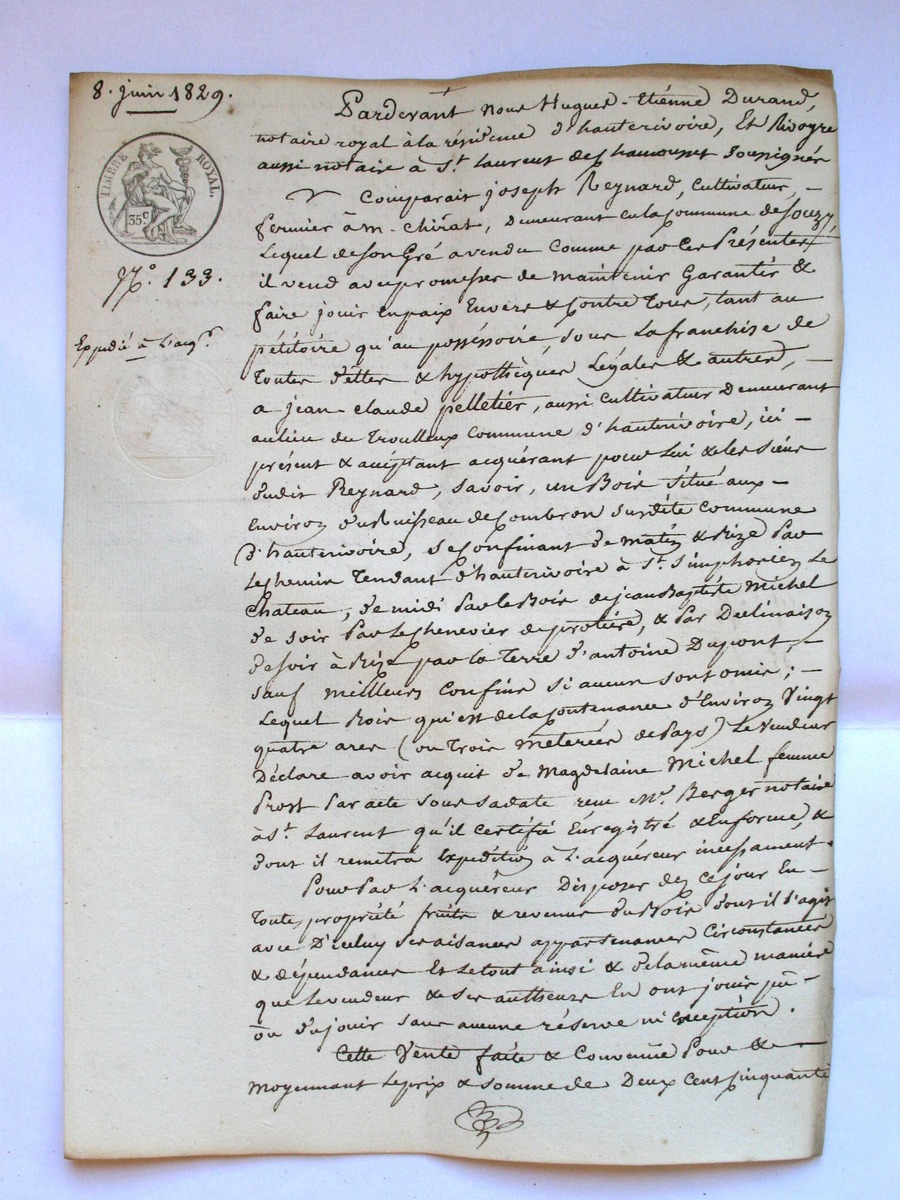 8. juin 1829.
TIMBRE ROYAL.
35c
N.° 133.
Expédié à L'acqr.
Pardevant nous Hugues-Etiénne Durand,
notaire royal à la résidence d'hauterivoire, Et Rivoyre
aussi notaire à St. Laurent de Chamousset Soussignés
Comparait joseph Reynard, Cultivateur,
fermier à m. Chirat, Demeurant en la Commune de Souzy,
Lequel de son Gré a vendu Comme par Ces Présentes
il vend avec promesses de maintenir Garantir &
faire jouir En paix Envers & Contre Tous, tant au
pétitoire qu'au posséssoire, sous La franchise de
Toutes dettes & hypothèques Légales & autres,
a jean-claude pelletier, aussi Cultivateur Demeurant
au lieu du Troulloux Commune d'hauterivoire, ici
présent & acceptant acquérant pour Lui & les siens
dudit Reynard, savoir, un Bois situé aux
Environs du Ruisseau de Combron susdite Commune
d'hauterivoire, se Confinant de matin & Bize Par
Le chemin Tendant d'hauterivoire à St. Simphorien Le
Chateau, de midi Par le Bois de jean Baptiste Michel
de soir Par Le Chenevier de protière, & Par Déclinaison
de soir à Bize par la Terre d'antoine Dupont,
sauf meilleurs Confins si aucuns sont omis;
Lequel Bois qu'est de la Contenance d'Environ Vingt
quatre ares (ou Trois Meterées de Pays) Le Vendeur
Déclare avoir acquit de Magdelaine Michel femme
Prost Par acte sous sa date reçu Me. Berger notaire
à St. Laurent qu'il certifie Enregistré & En forme, &
dont il remettra Expédition à L'acquéreur incessament.
Pour Par L'acquéreur Disposer dès ce jour En
Toute propriété fruits & revenus du Bois dont il s'agit
avec D'icelui ses aisances appartenances Circonstances
& dépendances Et Le tout ainsi & de la même manière
que Le vendeur & ses autheurs En ont joui pû
ou du jouir sans aucune réserve ni exception.
Cette Vente faite & Convenüe Pour &
moyennant Le prix & somme de Deux Cent Cinquante